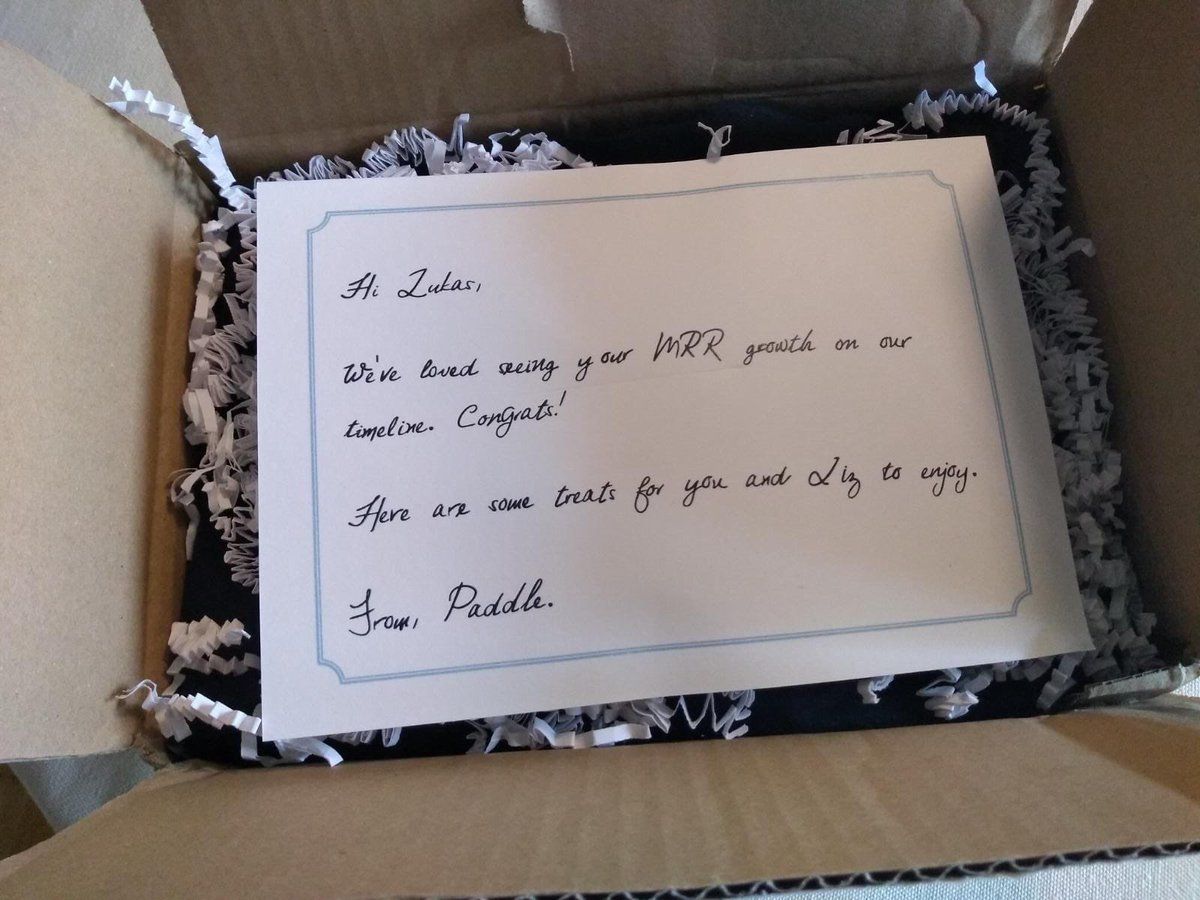 Hi Lukas,
We've loved seeing your MRR growth on our
timeline. Congrats!
Here are some treats for you and Liz to enjoy.
From, Paddle.